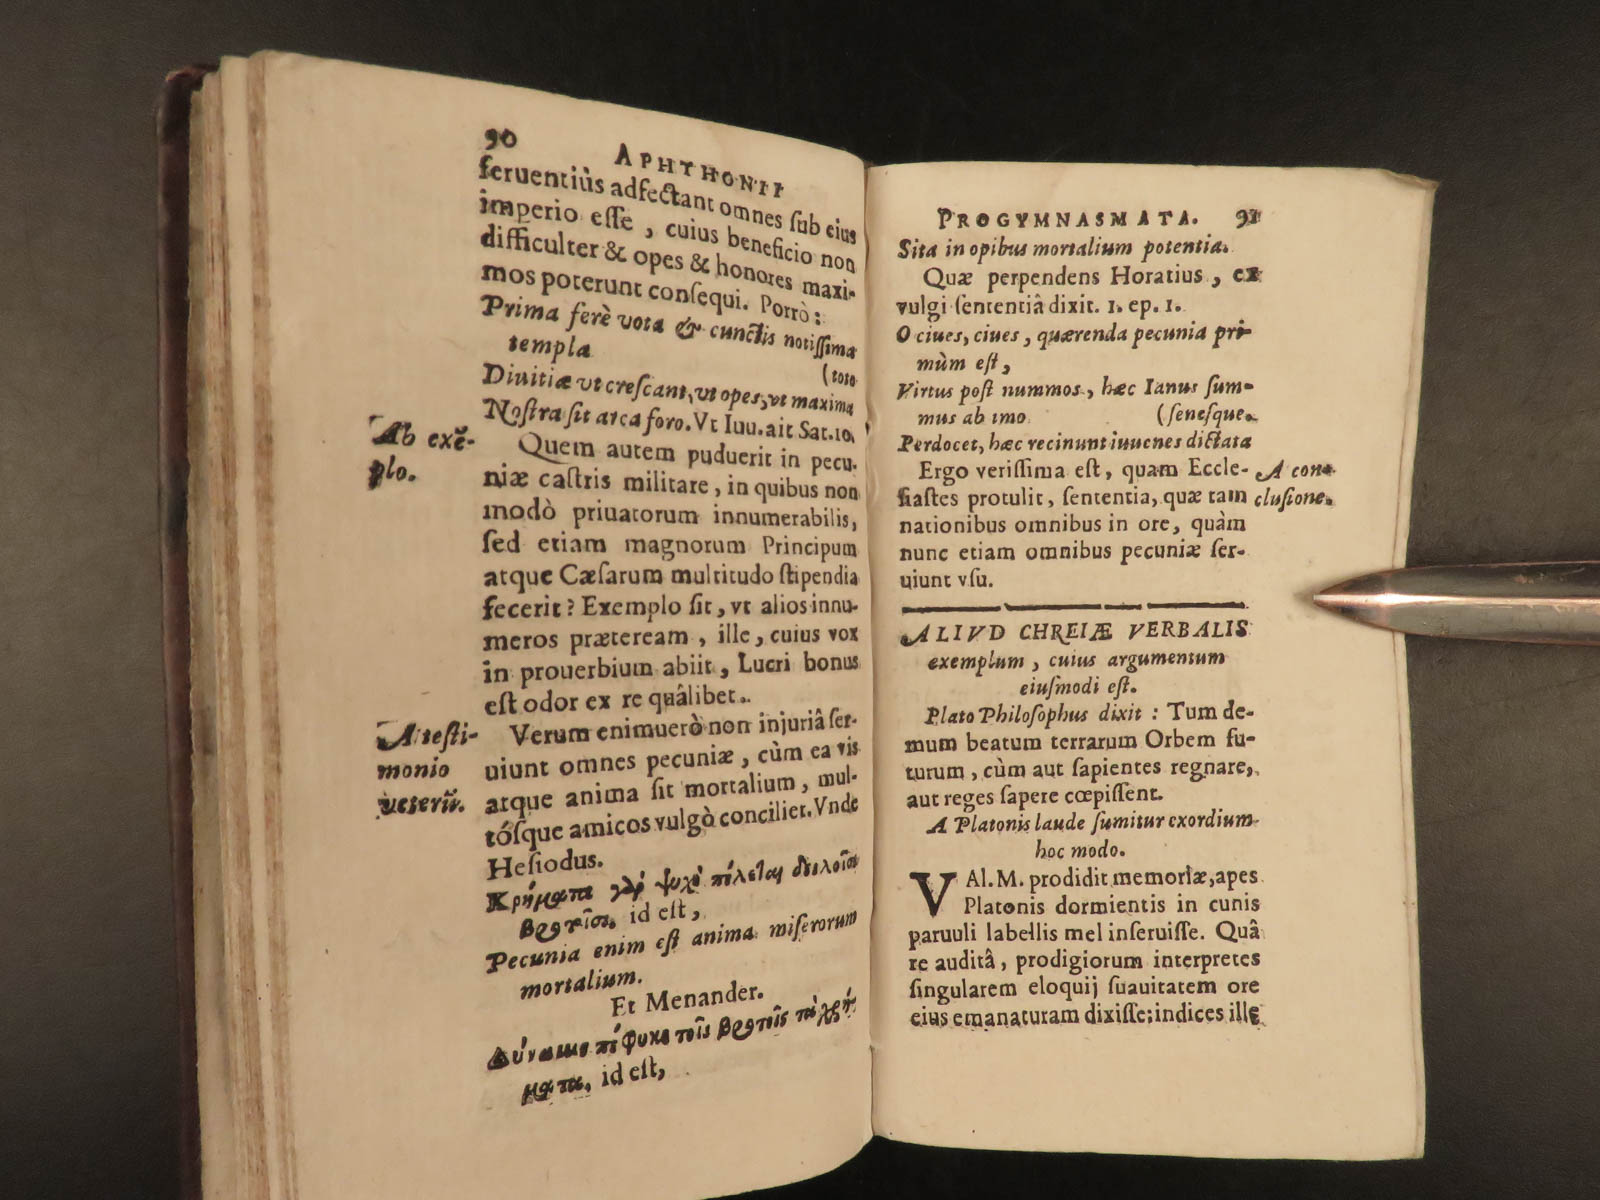 90 APHTHONII
feruentiùs adfectant omnes ſub eius
imperio eſſe , cuius beneficio non
difficulter & opes & honores maxi-
mos poterunt conſequi. Porrò :
Prima ferè vota & cunctis notiſſima
templa
(toto
Diuitiæ vt creſcant, vt opes, vt maxima
Noſtra ſit arca foro. Vt Iuu. ait Sat. 10.
Ab exẽ-
plo.
Quem autem puduerit in pecu-
niæ caſtris militare, in quibus non
modò priuatorum innumerabilis,
ſed etiam magnorum Principum
atque Cæſarum multitudo ſtipendia
fecerit ? Exemplo ſit, vt alios innu-
meros præteream , ille, cuius vox
in prouerbium abiit , Lucri bonus
eſt odor ex re quâlibet.
A teſti-
monio
veterũ.
Verum enimuerò non injuriâ ſer-
uiunt omnes pecuniæ, cùm ea vis
atque anima ſit mortalium , mul-
tóſque amicos vulgò conciliet. Vnde
Heſiodus.
Χρήματα γὰρ ψυχὴ πέλεται δειλοῖσι
βροτοῖσι, id eſt,
Pecunia enim eſt anima miſerorum
mortalium.
Et Menander.
Δύναμις πέφυκε τοῖς βροτοῖς τὰ χρή-
ματα, id eſt,
PROGYMNASMATA. 91
Sita in opibus mortalium potentia.
Quæ perpendens Horatius , ex
vulgi ſententiâ dixit. 1. ep. 1.
O ciues, ciues, quærenda pecunia pri-
mùm eſt,
Virtus poſt nummos, hæc Ianus ſum-
mus ab imo (ſeneſque.
Perdocet, hæc recinunt iuuenes dictata
Ergo veriſſima eſt, quam Eccle-
ſiaſtes protulit, ſententia, quæ tam
nationibus omnibus in ore, quàm
nunc etiam omnibus pecuniæ ſer-
uiunt vſu.
A con-
cluſione.
ALIVD CHREIÆ VERBALIS
exemplum , cuius argumentum
eiuſmodi eſt.
Plato Philoſophus dixit : Tum de-
mum beatum terrarum Orbem fu-
turum , cùm aut ſapientes regnare,
aut reges ſapere cœpiſſent.
A Platonis laude ſumitur exordium
hoc modo.
VAl. M. prodidit memoriæ, apes
Platonis dormientis in cunis
paruuli labellis mel inſeruiſſe. Quâ
re auditâ, prodigiorum interpretes
ſingularem eloquij ſuauitatem ore
eius emanaturam dixiſſe; indices ille